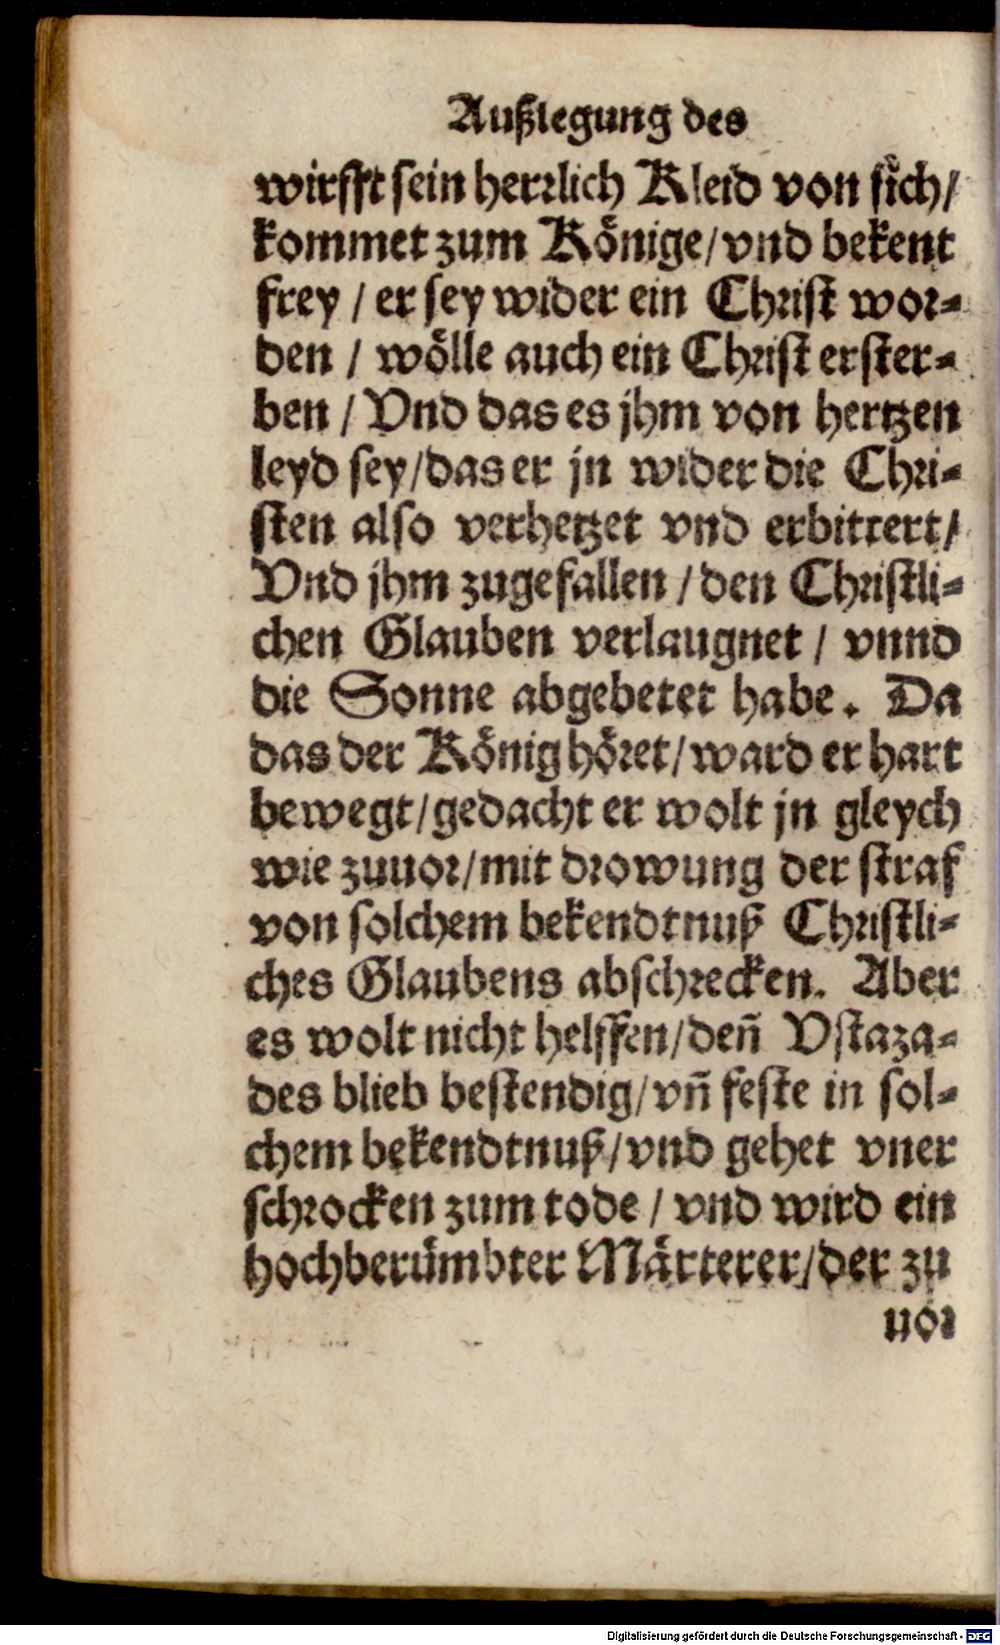 Außlegung des
wirfft sein herrlich Kleid von sich/
kommet zum Könige/vnd bekent
frey / er sey wider ein Christ wor-
den / wölle auch ein Christ erster-
ben / Vnd das es jhm von hertzen
leyd sey/das er jn wider die Chri-
sten also verhetzet vnd erbittert/
Vnd jhm zugefallen / den Christli-
chen Glauben verlaugnet / vnnd
die Sonne abgebetet habe. Da
das der König höret/ward er hart
bewegt/gedacht er wolt jn gleych
wie zuuor/mit drowung der straf
von solchem bekendtnuß Christli-
ches Glaubens abschrecken. Aber
es wolt nicht helffen/deñ Vstaza-
des blieb bestendig/vñ feste in sol-
chem bekendtnuß/vnd gehet vner
schrocken zum tode / vnd wird ein
hochberümbter Märterer/der zu
uor
Digitalisierung gefördert durch die Deutsche Forschungsgemeinschaft - DFG